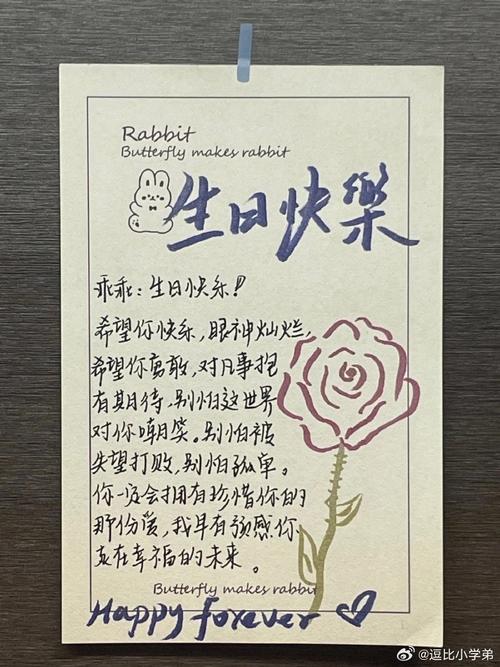 Rabbit
Butterfly makes rabbit
生日快樂
乖乖：生日快乐！
希望你快乐，眼神灿烂，
希望你勇敢，对凡事抱
有期待，别怕这世界
对你嘲笑。别怕被
失望打败，别怕孤单。
你一定会拥有珍惜你的
那份爱，我早有预感你
来在幸福的未来。
Butterfly makes rabbit
Happy forever
@逗比小学弟